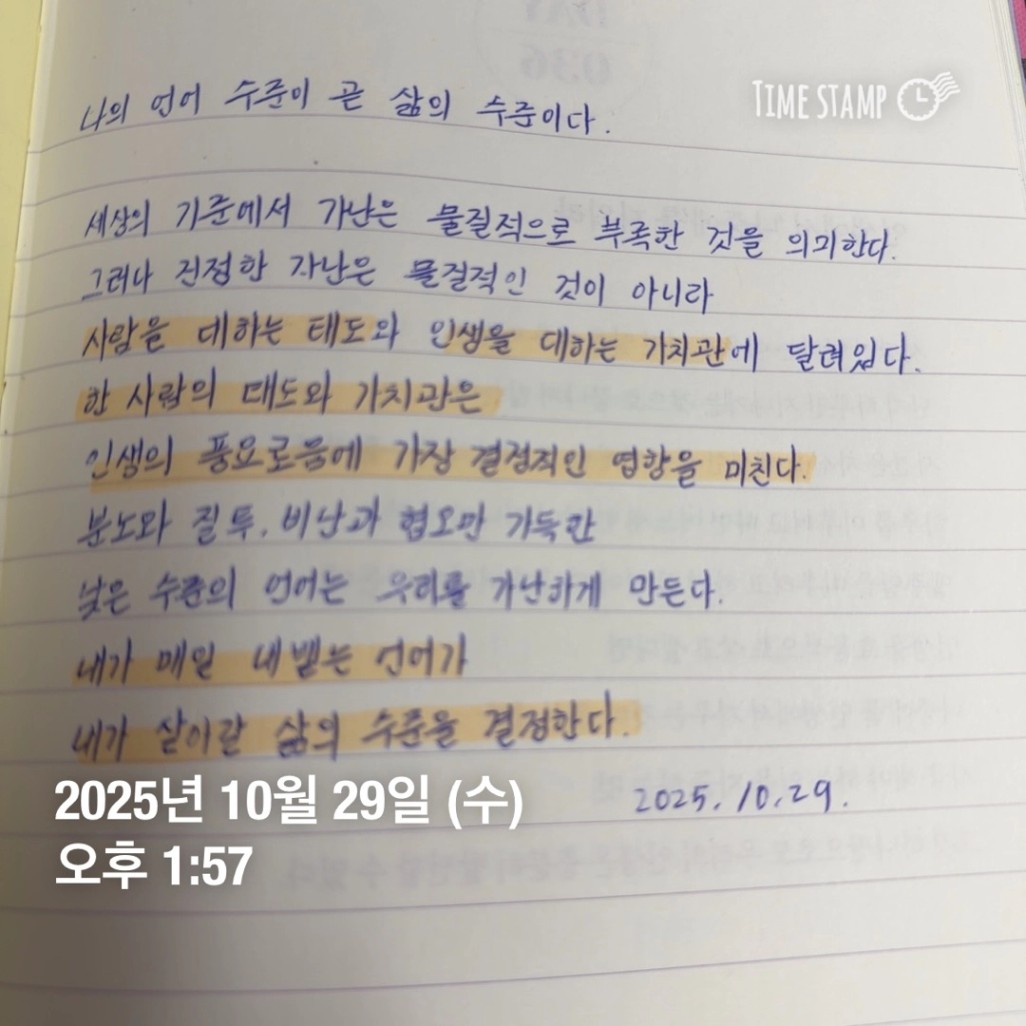 TIME STAMP
나의 언어 수준이 곧 삶의 수준이다.
세상의 기준에서 가난은 물질적으로 부족한 것을 의미한다.
그러나 진정한 가난은 물질적인 것이 아니라
사람을 대하는 태도와 인생을 대하는 가치관에 달려있다.
한 사람의 태도와 가치관은
인생의 풍요로움에 가장 결정적인 영향을 미친다.
분노와 질투, 비난과 혐오만 가득한
낮은 수준의 언어는 우리를 가난하게 만든다.
내가 매일 내뱉는 언어가
내가 살아갈 삶의 수준을 결정한다.
2025.10.29.
2025년 10월 29일 (수)
오후 1:57